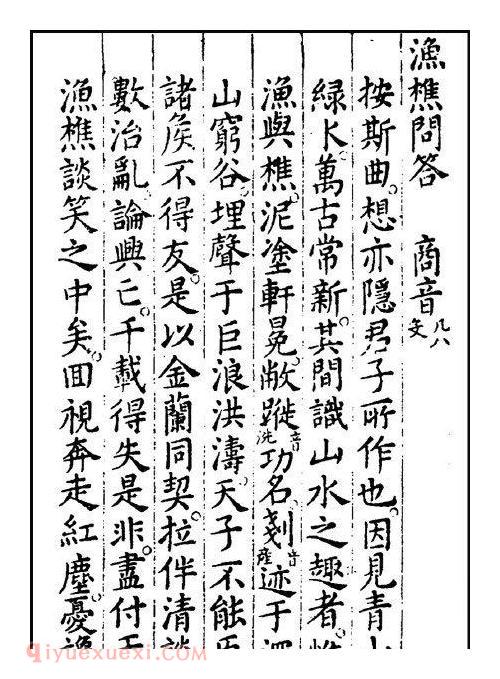 漁樵問答 商音 凡八
按斯曲。想亦隱君子所作也。因見青山
綠水。萬古常新。其間識山水之趣者。惟
漁與樵。泥塗軒冕。敝蹝音洗功名。剗音產迹于
山窮谷。埋聲于巨浪洪濤。天子不能臣
諸矦不得友。是以金蘭同契。拉伴清談
數治亂。論興亡。千載得失是非。盡付
漁樵談笑之中矣。囬視奔走紅塵。憂
qiyuexuexi.COM